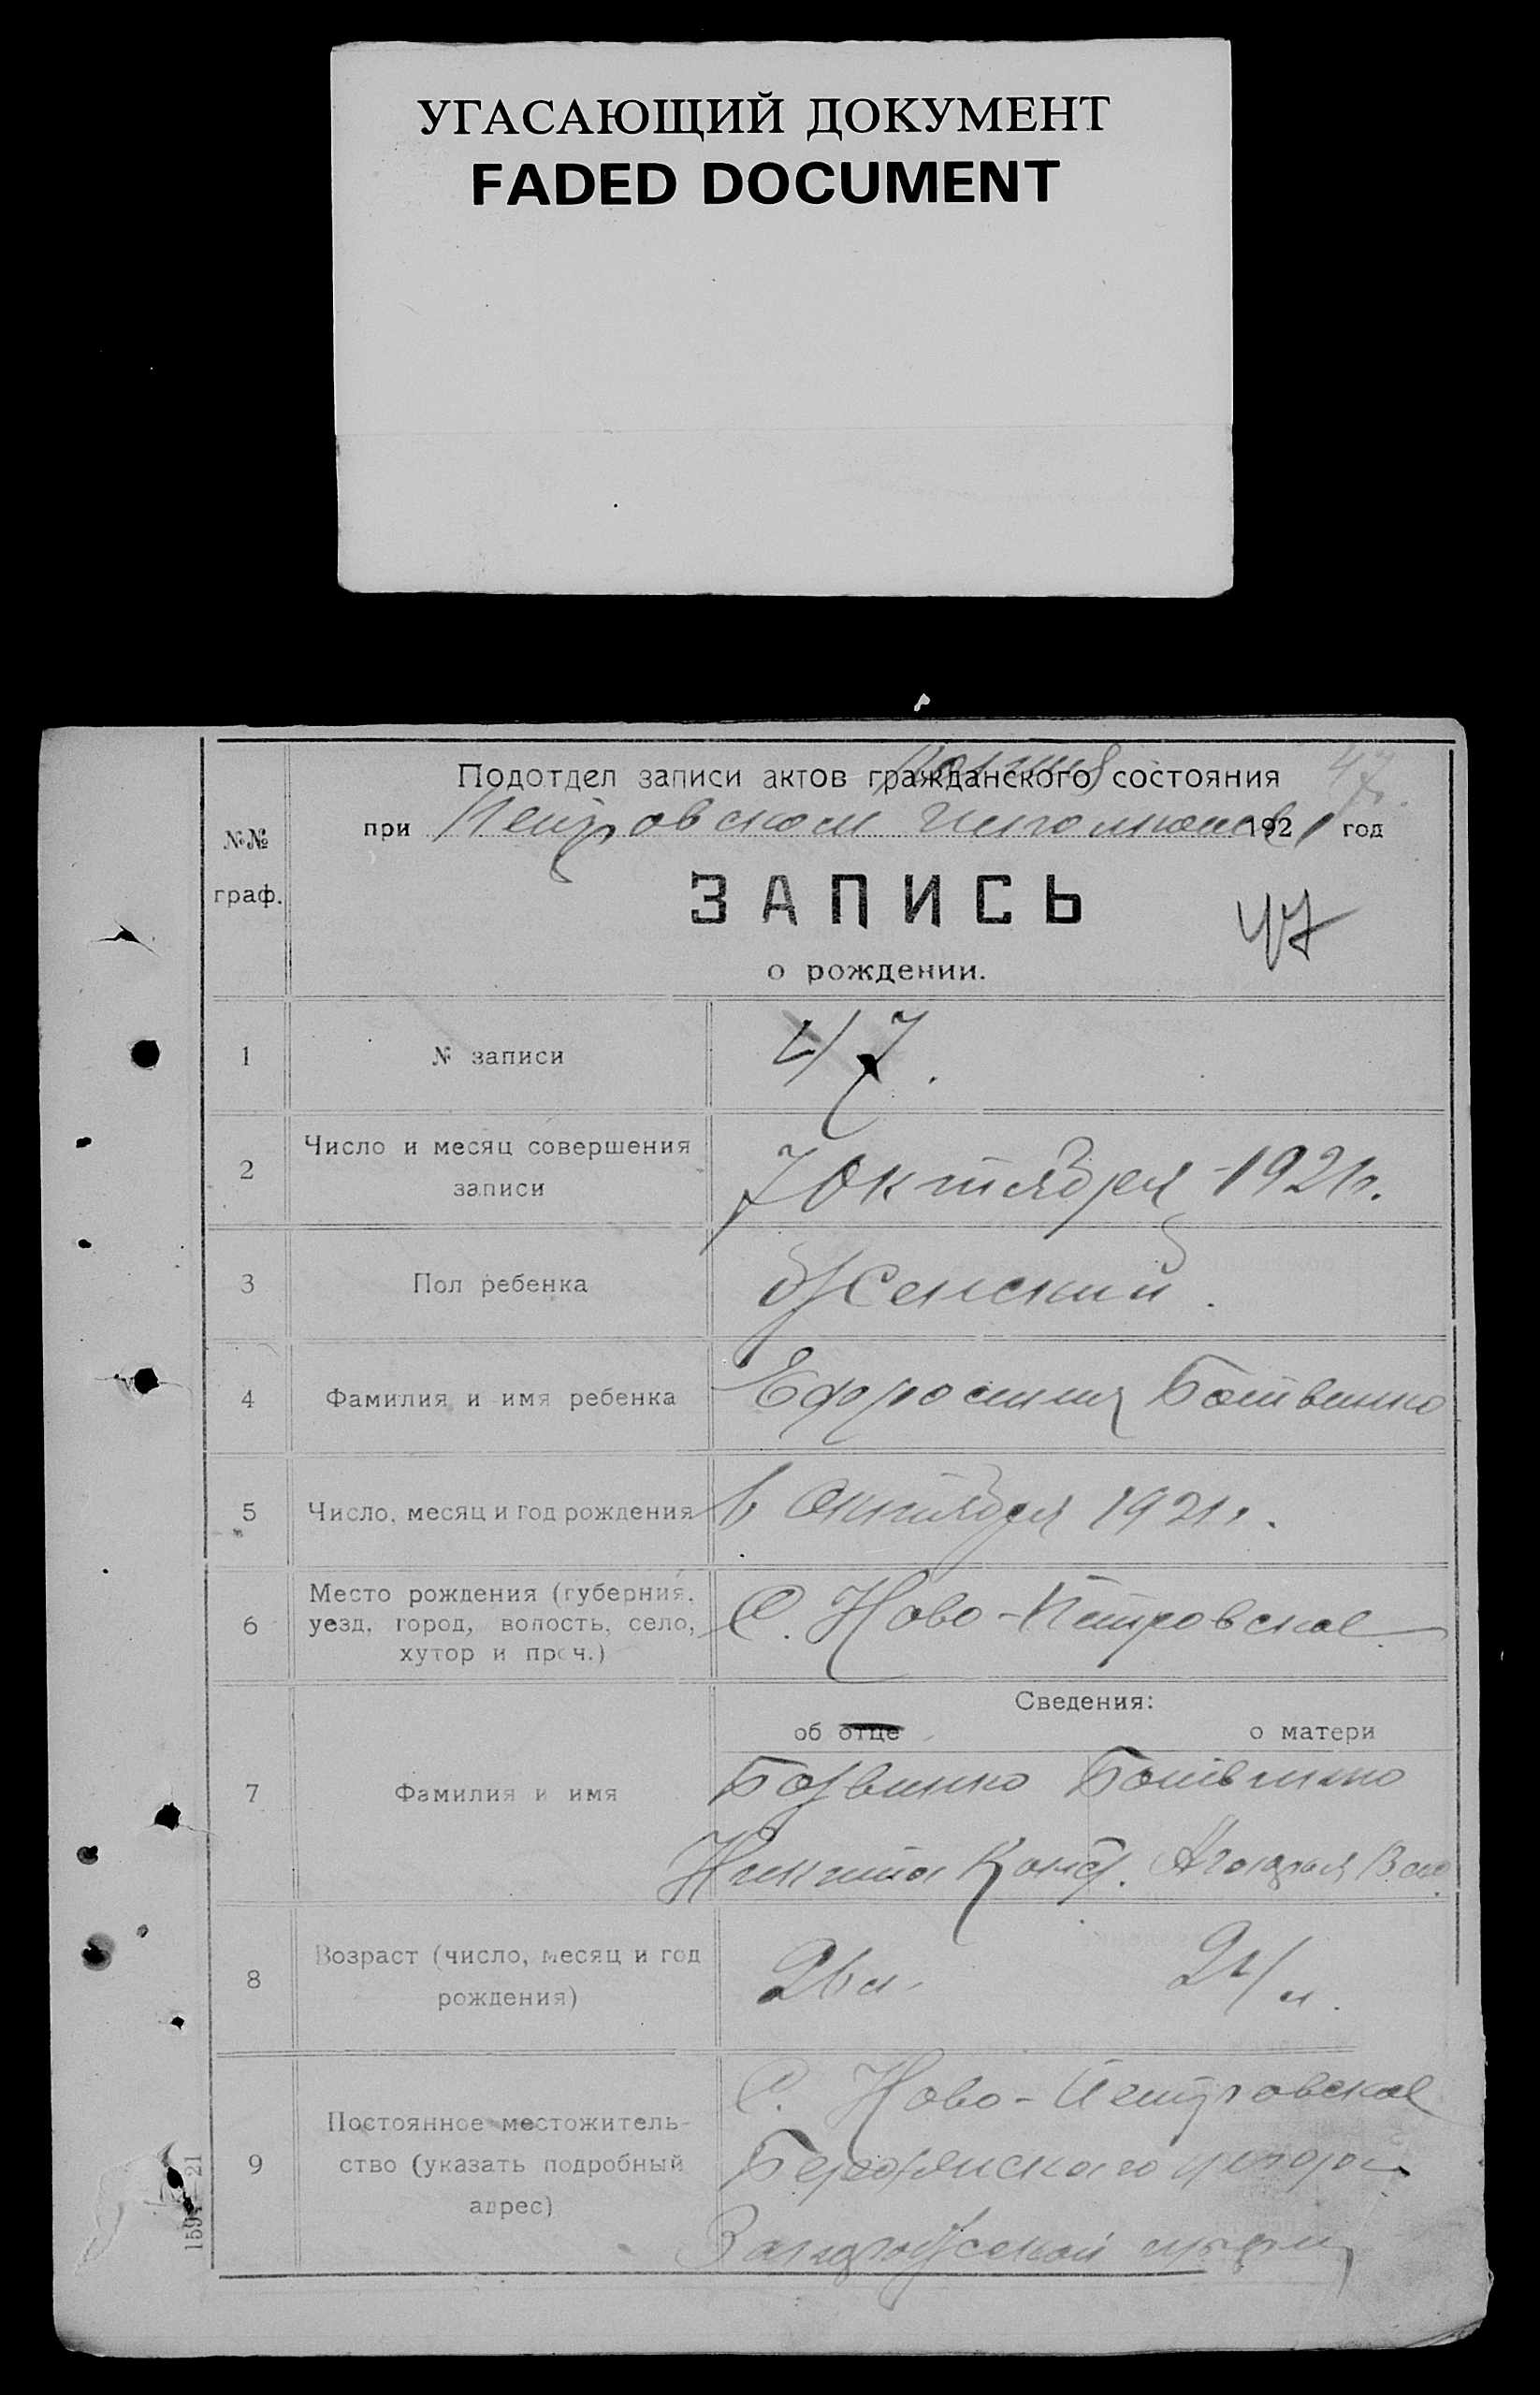 УГАСАЮЩИЙ ДОКУМЕНТ
FADED DOCUMENT
Подотдел записи актов гражданского состояния 47
при Петровском 1921 год
№№
граф.
ЗАПИСЬ
47
о рождении.
1 № записи 47.
2 Число и месяц совершения
записи
7 Октября 1921 г.
3 Пол ребенка Женский.
4 Фамилия и имя ребенка Ефросиния Ботвинко
5 Число, месяц и год рождения 6 Октября 1921 г.
6 Место рождения (губерния,
уезд, город, волость, село,
хутор и проч.)
С. Ново-Петровское
Сведения:
об отце о матери
7 Фамилия и имя
Ботвинко Ботвинко
Никита Конст. Вас.
8 Возраст (число, месяц и год
рождения)
26 л. 24 л.
9 Постоянное местожитель-
ство (указать подробный
адрес)
С. Ново-Петровское
Бердянского уезда
Запорожской
1594—21